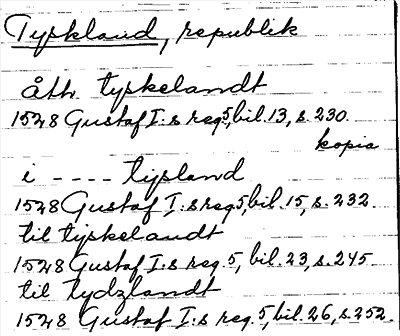 Tyskland, republik
åth tyskelandt
1528 Gustaf I:s reg. 5, bil. 13, s. 230.
kopia
i ---- tysland
1528 Gustaf I:s reg. 5, bil. 15, s. 232.
til tijskelandt
1528 Gustaf I:s reg. 5, bil. 23, s. 245.
til tydzlandt
1528 Gustaf I:s reg. 5, bil. 26, s. 252.